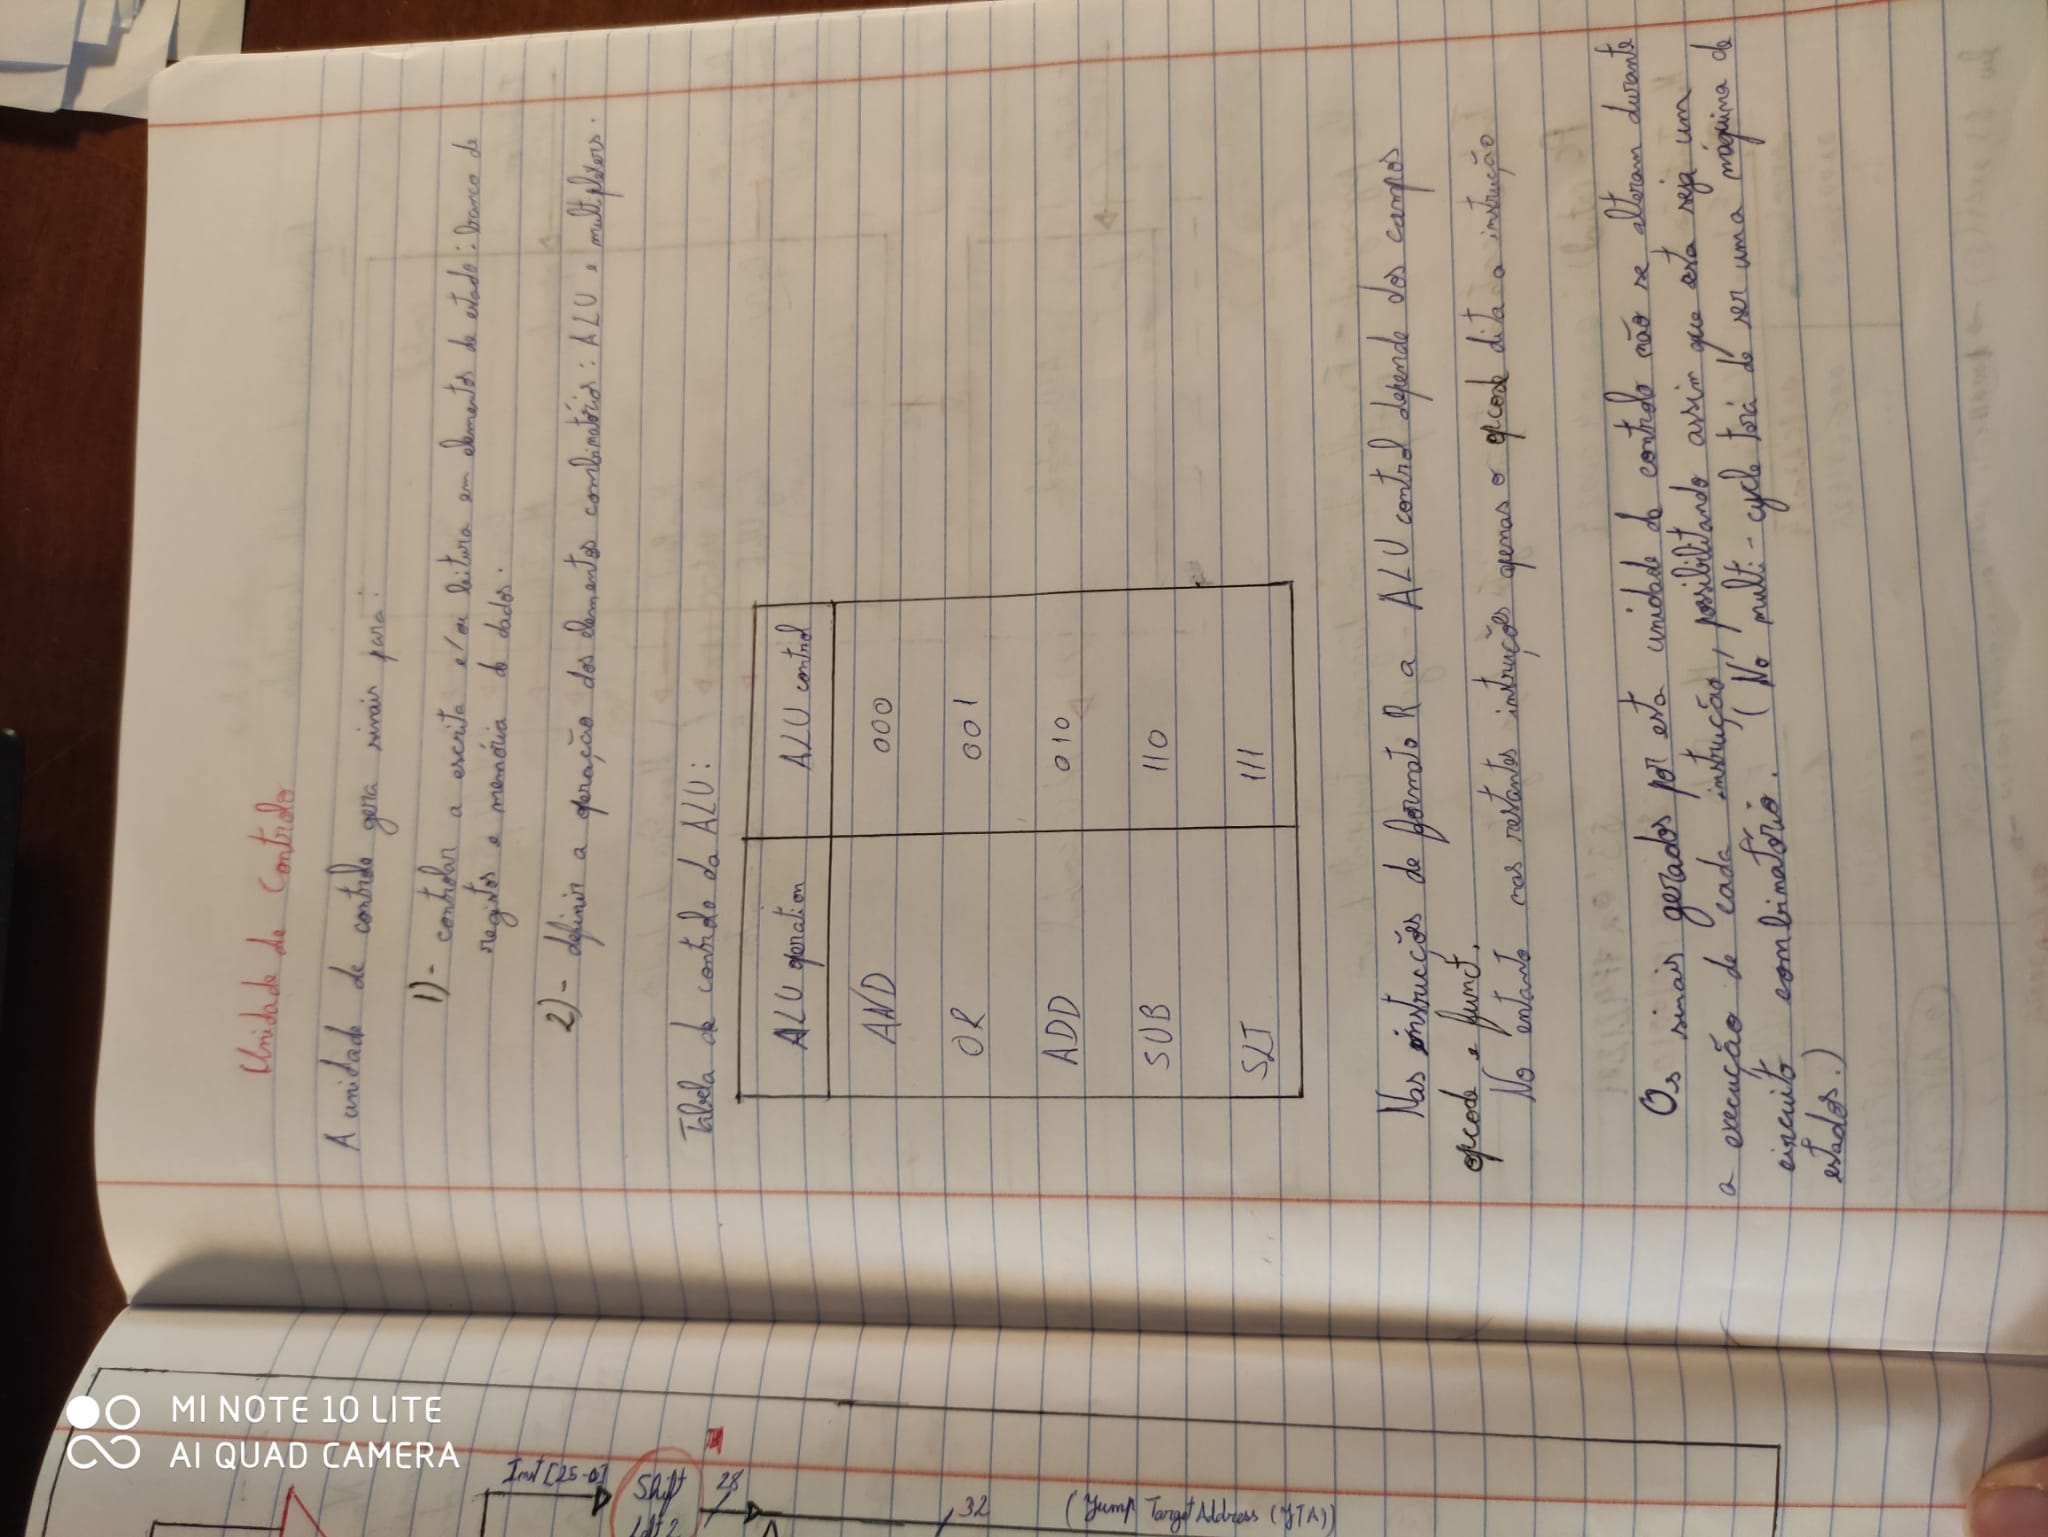 MI NOTE 10 LITE
AI QUAD CAMERA
Inst[25-0]
Shift
28
32
(Jump Target Address (JTA))
Unidade de Controlo
A unidade de controlo gera sinais para:
1)- controlar a escrita e/ou leitura em elementos de estado: banco de
registos e memória de dados.
2)- definir a operação dos elementos combinatórios: ALU e multiplexers.
Tabela de controlo da ALU:
ALU operation ALU control
AND 000
OR 001
ADD 010
SUB 110
SLT 111
Nas instrucções de formato R a ALU control depende dos campos
opcode e funct.
No entanto nas restantes instruções apenas o opcode dita a instrução
Os sinais gerados por esta unidade de controlo não se alteram durante
a execução de cada instrução, possibilitando assim que esta seja um
circuito combinatório. (No multi-cycle terá de ser uma máquina de
estados.)